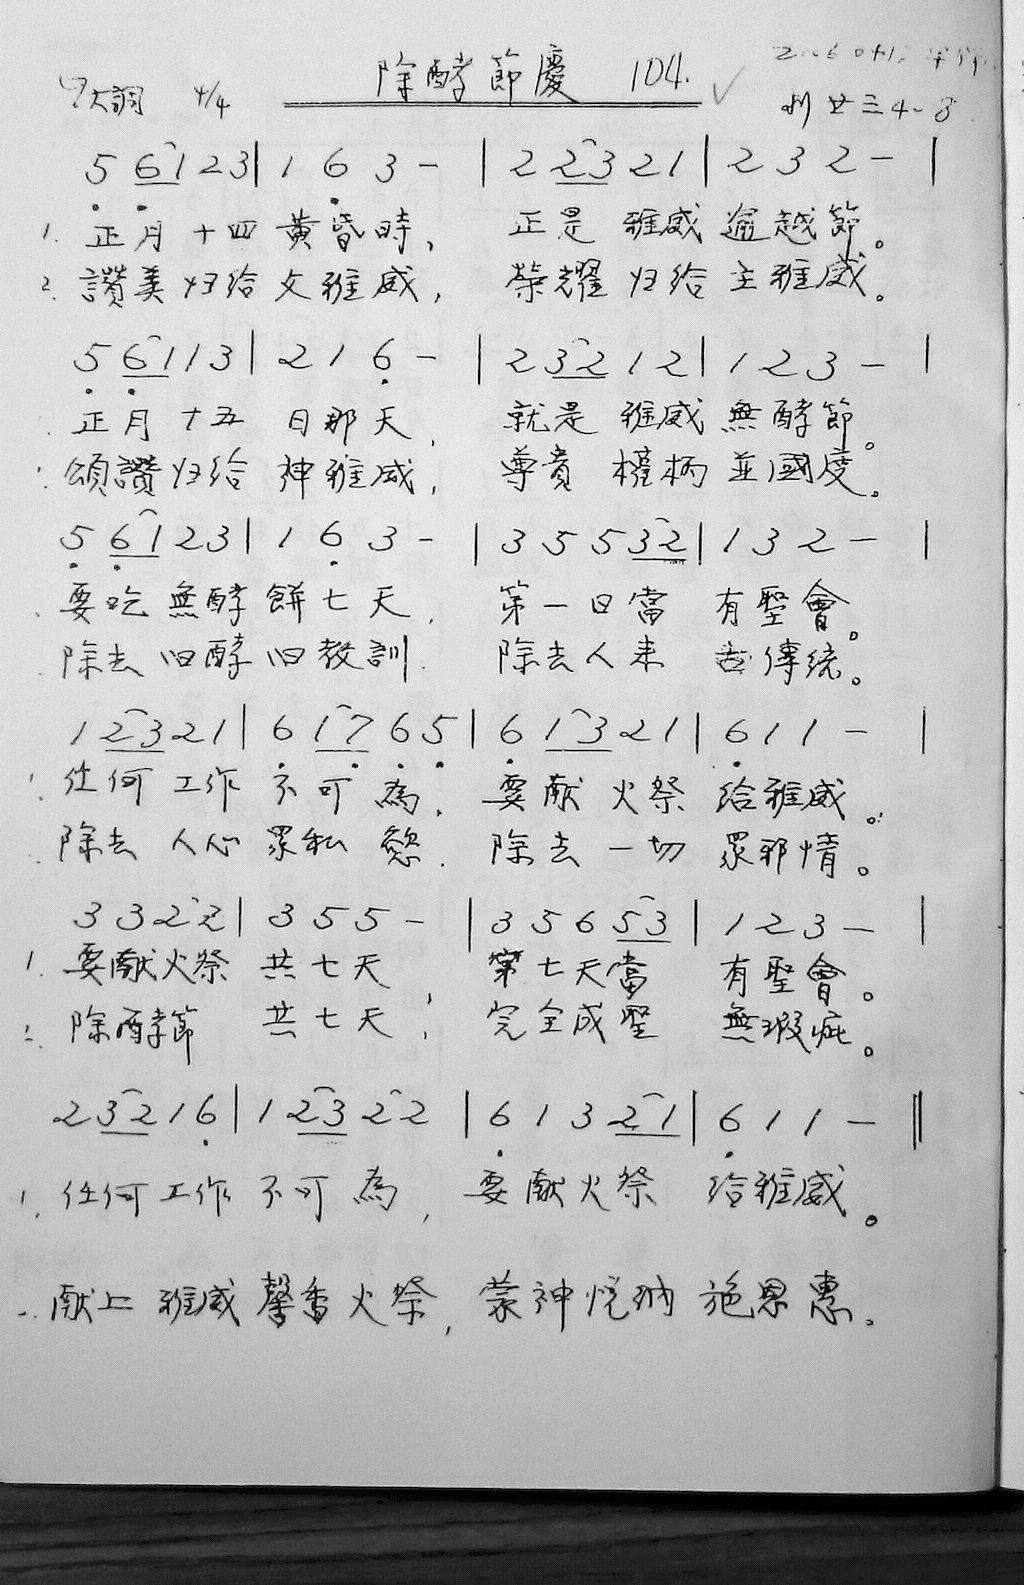 除酵節慶 104.
大調 4/4 利廿三4-8
5 6 1 2 3 | 1 6 3 - | 2 2 3 2 1 | 2 3 2 - |
1. 正月十四黃昏時, 正是雅威逾越節。
2. 讚美归給父雅威, 榮耀归給主雅威。
5 6 1 1 3 | 2 1 6 - | 2 3 2 1 2 | 1 2 3 - |
正月十五日那天, 就是雅威無酵節。
頌讚归給神雅威, 尊貴權柄並國度。
5 6 1 2 3 | 1 6 3 - | 3 5 5 3 2 | 1 3 2 - |
要吃無酵餅七天, 第一日當有聖會。
除去旧酵旧教訓. 除去人来古傳統。
1 2 3 2 1 | 6 1 7 6 5 | 6 1 3 2 1 | 6 1 1 - |
1. 任何工作不可為, 要献火祭給雅威。
除去人心眾私慾. 除去一切眾邪情。
3 3 2 2 | 3 5 5 - | 3 5 6 5 3 | 1 2 3 - |
1. 要献火祭共七天, 第七天當有聖會。
2. 除酵節共七天, 完全成聖無瑕疵。
2 3 2 1 6 | 1 2 3 2 2 | 6 1 3 2 1 | 6 1 1 - ‖
1. 任何工作不可為, 要献火祭給雅威。
献上雅威馨香火祭, 蒙神悅納施恩惠。